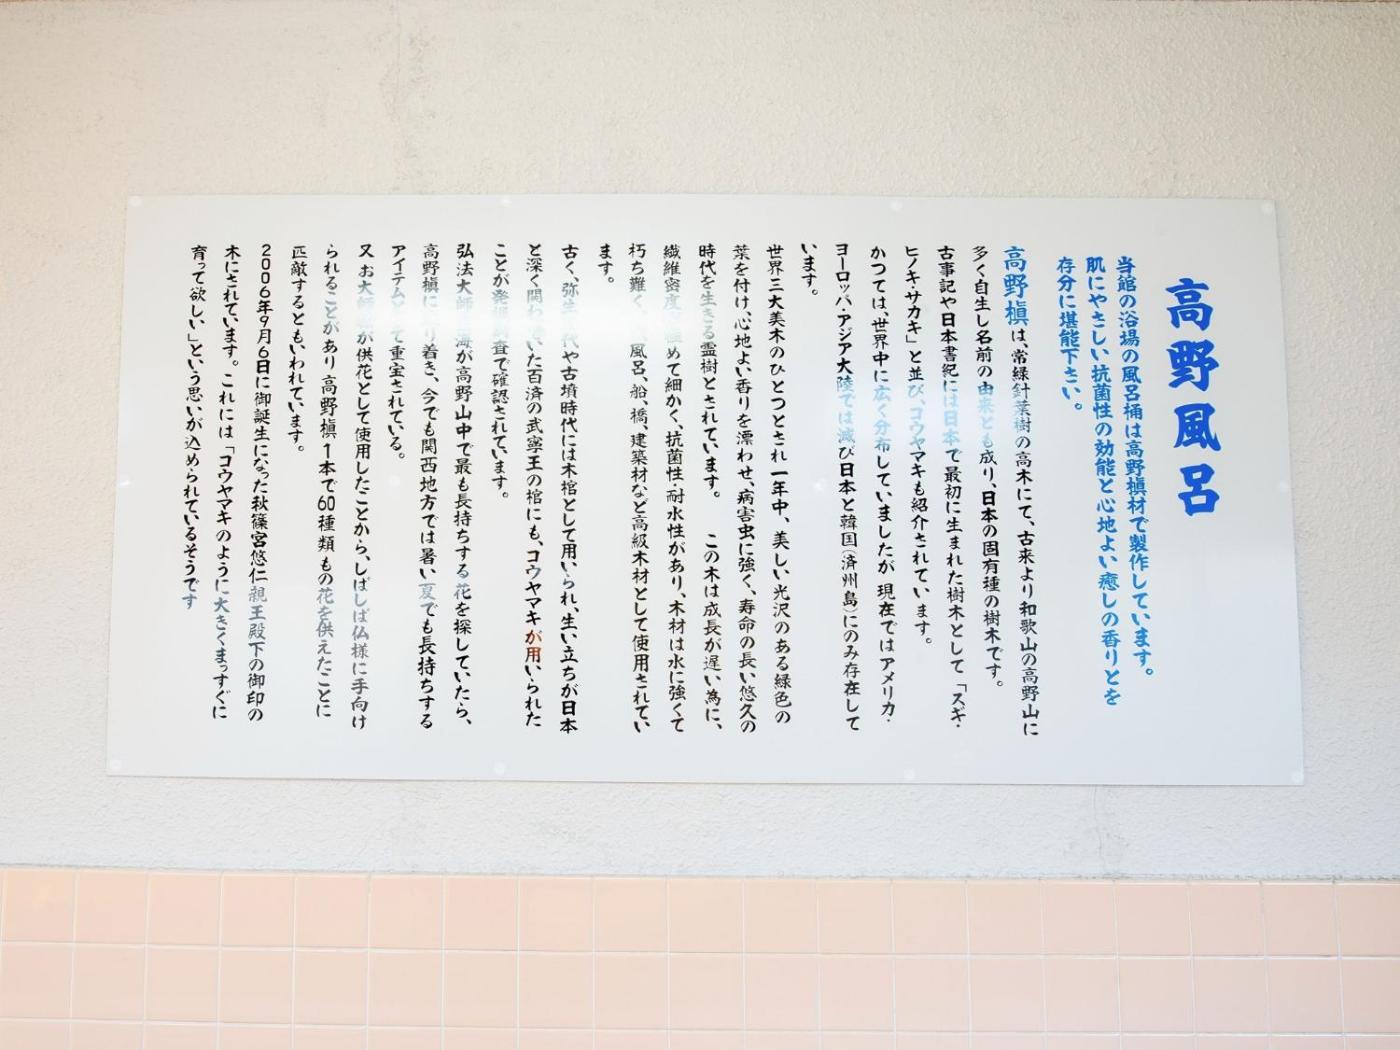 高野風呂
当館の浴場の風呂桶は高野槇材で製作しています。
肌にやさしい抗菌性の効能と心地よい癒しの香りとを
存分に堪能下さい。
高野槇は、常緑針葉樹の高木にて、古来より和歌山の高野山に
多く自生し名前の由来とも成り、日本の固有種の樹木です。
古事記や日本書紀には日本で最初に生まれた樹木として「スギ・
ヒノキ・サカキ」と並び、コウヤマキも紹介されています。
かつては、世界中に広く分布していましたが現在ではアメリカ・
ヨーロッパ・アジア大陸では滅び日本と韓国(済州島)にのみ存在して
います。
世界三大美木のひとつとされ一年中、美しい光沢のある緑色の
葉を付け、心地よい香りを漂わせ、病害虫に強く、寿命の長い悠久の
時代を生きる霊樹とされています。 この木は成長が遅い為に、
繊維密度 極めて細かく、抗菌性・耐水性があり、木材は水に強くて
朽ち難く、 風呂、船、橋、建築材など高級木材として使用されてい
ます。
古く、弥生 代や古墳時代には木棺として用いられ、生い立ちが日本
と深く関わ いた百済の武寧王の棺にも、コウヤマキが用いられた
ことが発 調査で確認されています。
弘法大師 海が高野山中で最も長持ちする花を探していたら、
高野槇に り着き、今でも関西地方では暑い夏でも長持ちする
アイテム て重宝されている。
又お大師 が供花として使用したことから、しばしば仏様に手向け
られることがあり高野槇1本で60種類もの花を供えたことに
匹敵するともいわれています。
2006年9月6日に御誕生になった秋篠宮悠仁親王殿下の御印の
木にされています。これには「コウヤマキのように大きくまっすぐに
育って欲しい」という思いが込められているそうです